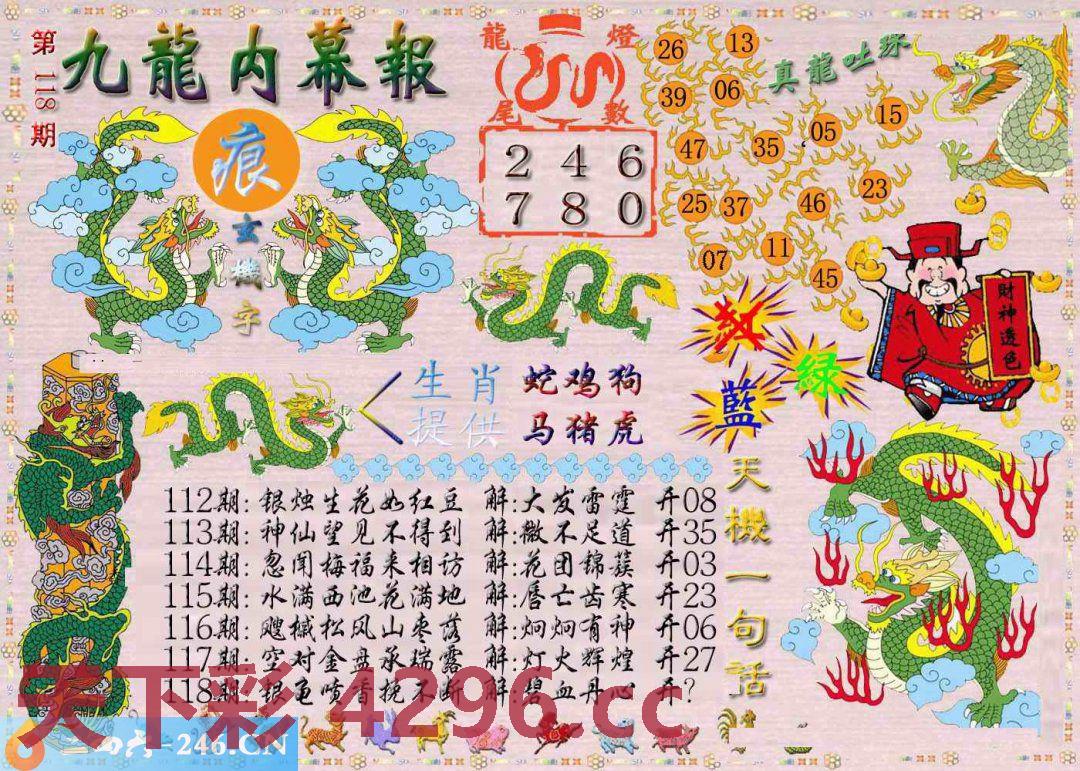 第118期
九龍内幕報
痕
玄機字
龍燈
尾數
2 4 6
7 8 0
真龍吐珠
26 13
39 06
47 35 05 15
25 37 46 23
07 11 45
財神透色
红
绿
藍
生肖 蛇鸡狗
提供 马猪虎
天機一句话
112期:银烛生花如红豆 解:大发雷霆 开08
113期:神仙望见不得到 解:微不足道 开35
114期:忽闻梅福来相访 解:花团锦簇 开03
115期:水满西池花满地 解:唇亡齿寒 开23
116期:飕槭松风山枣落 解:炯炯有神 开06
117期:空对金盘承瑞露 解:灯火辉煌 开27
118期:银龟喷香挽不断 解:碧血丹心 开?
天下彩 4296.cc
=246.CN